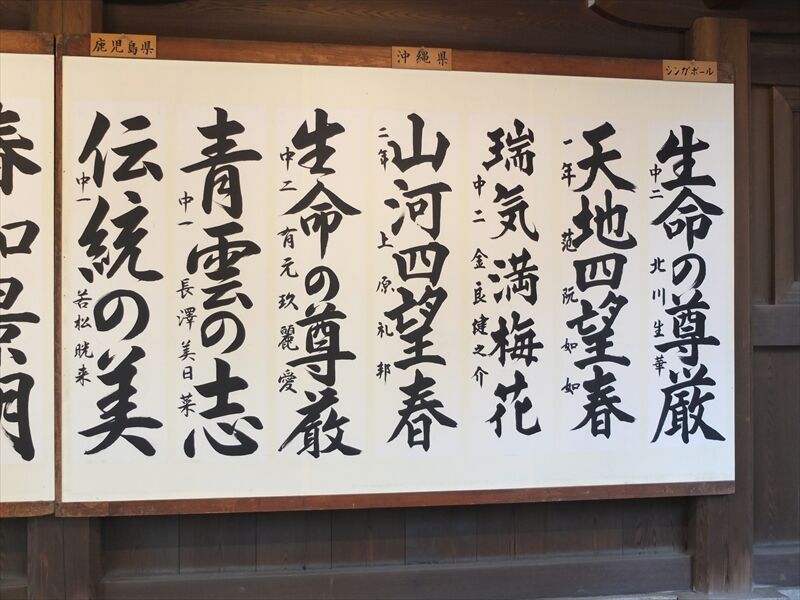 シンガポール
生命の尊厳
中二 北川生華
天地四望春
一年 范阮如如
瑞気満梅花
中二 金良健之介
沖縄県
山河四望春
二年 上原礼邦
生命の尊厳
中二 有元玖麗愛
鹿児島県
青雲の志
中一 長澤美日菜
伝統の美
中一 若松晄来
春和景明